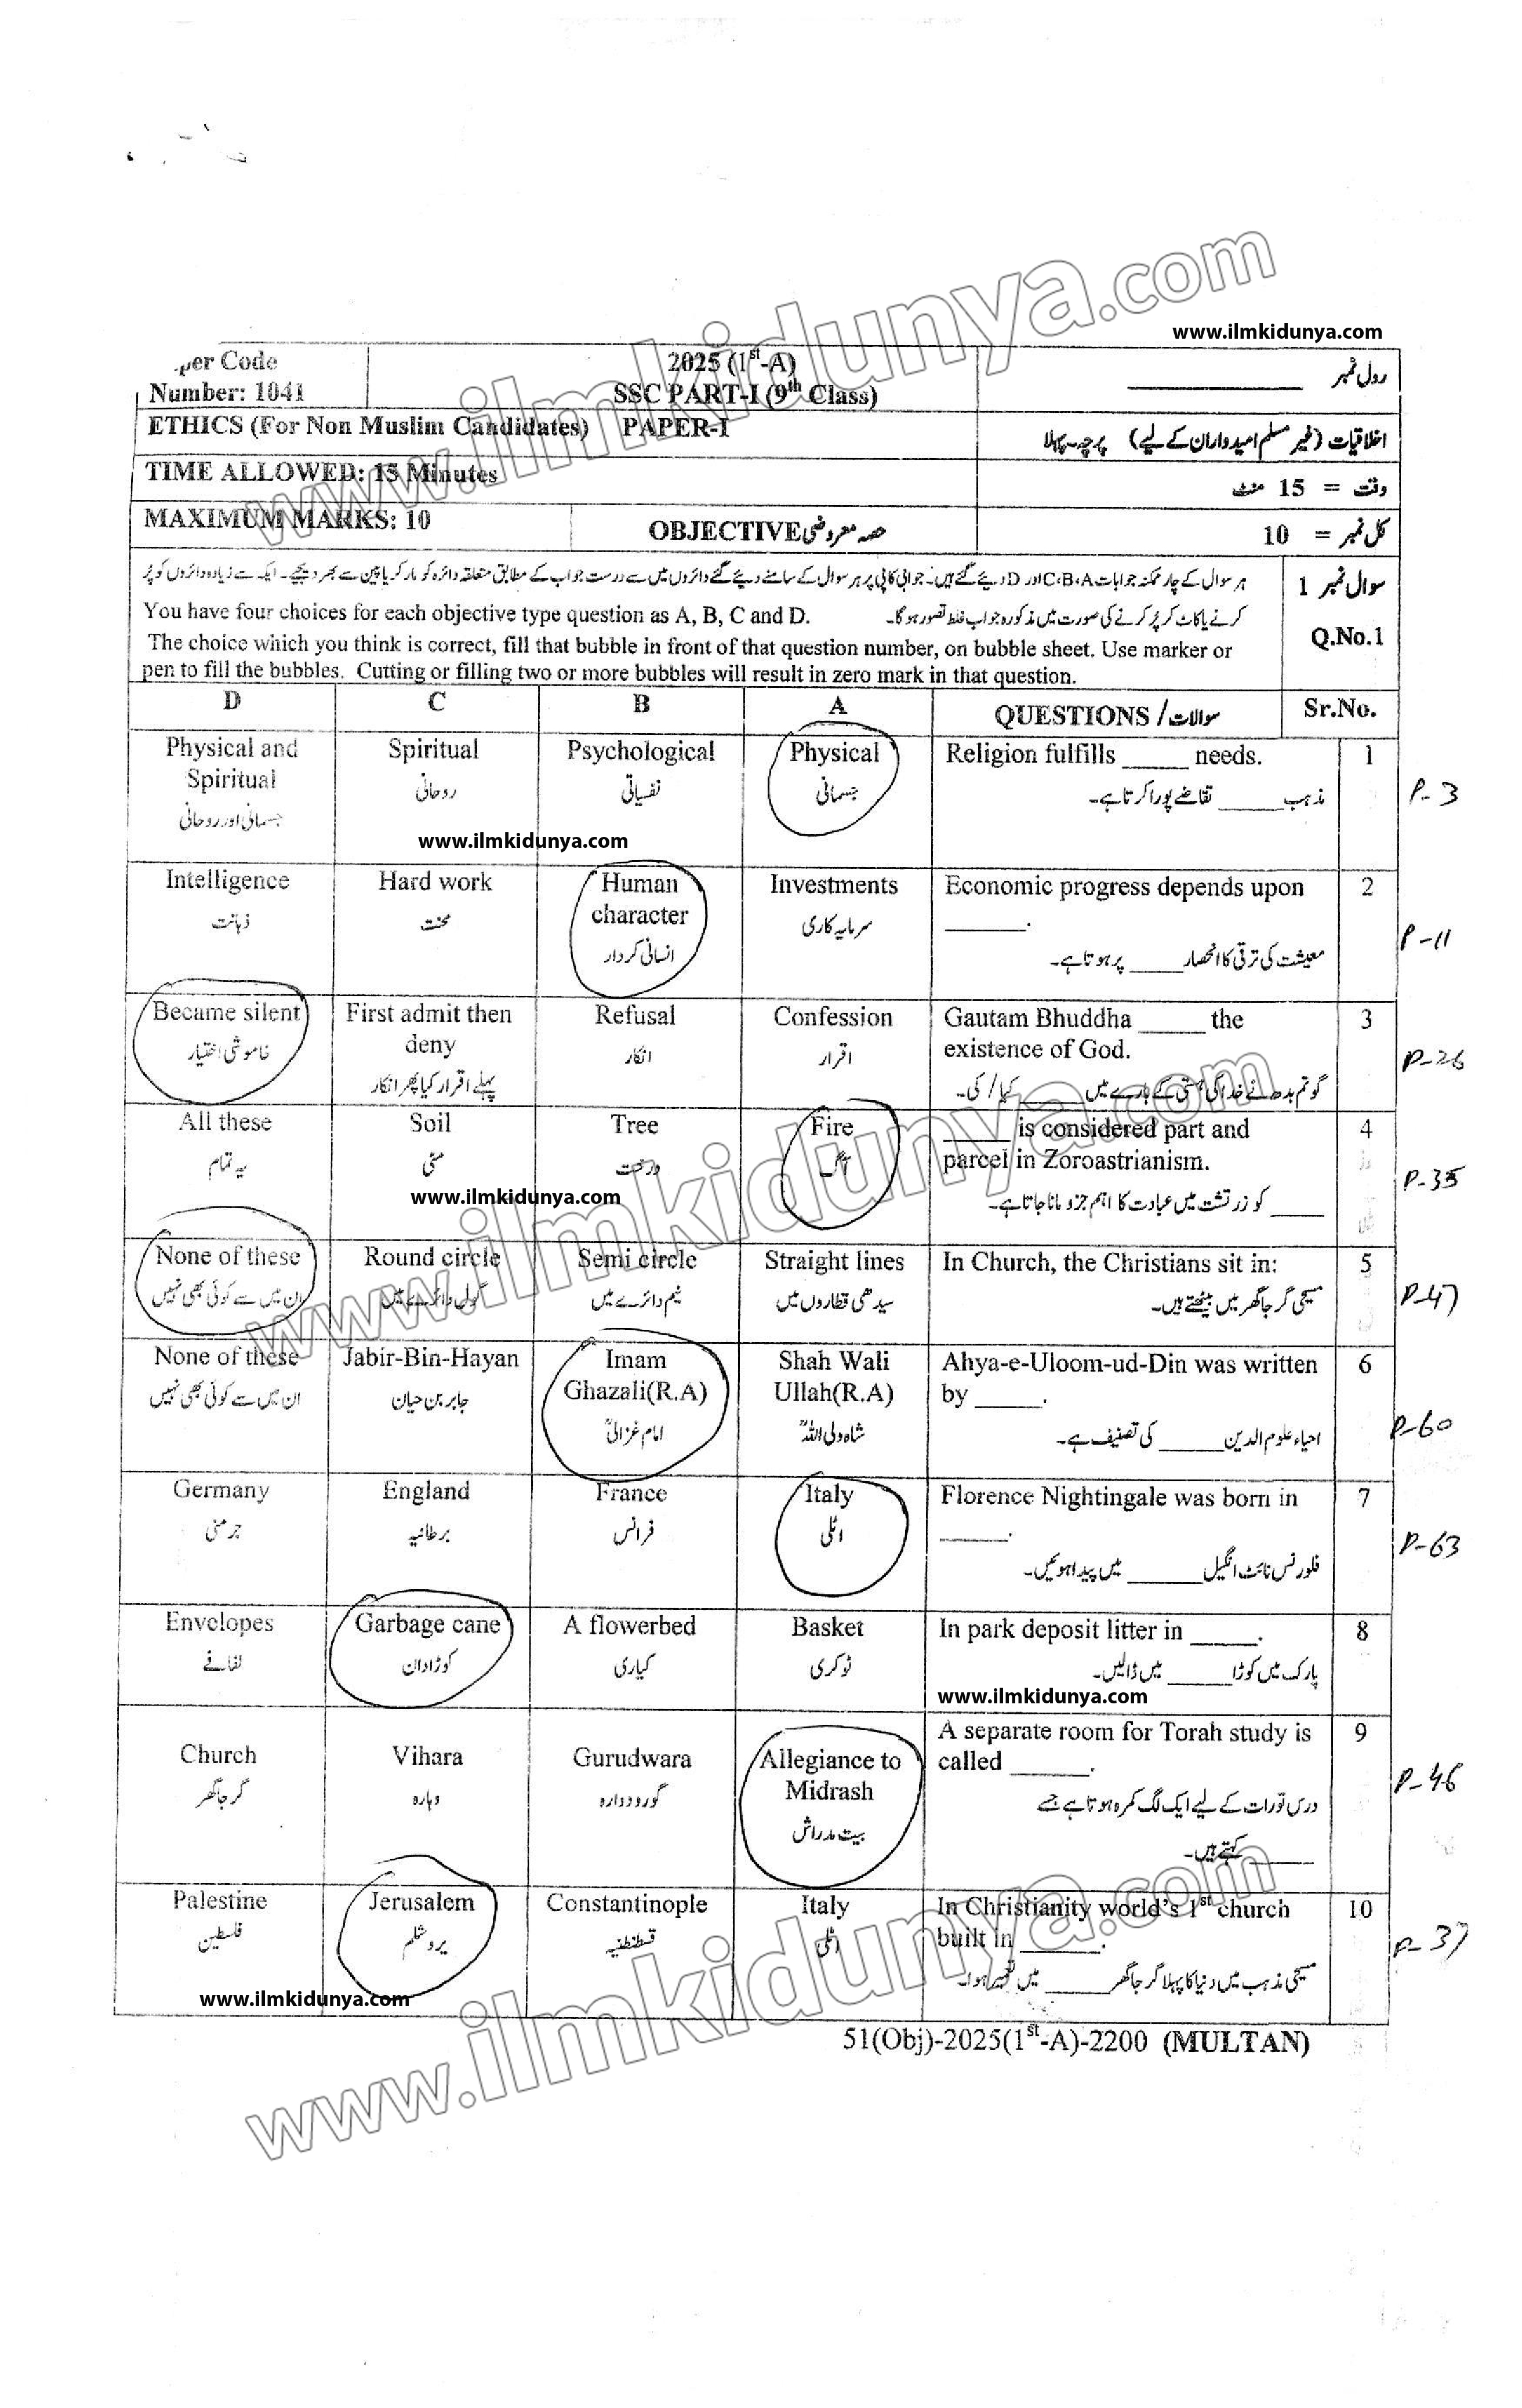 www.ilmkidunya.com
per Code
Number: 1041
2025 (1st-A)
SSC PART-I (9th Class)
رول نمبر ____________
ETHICS (For Non Muslim Candidates) PAPER-I
اخلاقیات (غیر مسلم امیدواران کے لیے) پرچہ۔پہلا
TIME ALLOWED: 15 Minutes
وقت = 15 منٹ
MAXIMUM MARKS: 10
OBJECTIVE حصہ معروضی
کل نمبر = 10
سوال نمبر 1
Q.No.1
ہر سوال کے چار ممکنہ جوابات A،B،C اور D دیئے گئے ہیں۔ جوابی کاپی پر ہر سوال کے سامنے دیئے گئے دائروں میں سے درست جواب کے مطابق متعلقہ دائرہ کو مارکر یا پین سے بھر دیجیے۔ ایک سے زیادہ دائروں کو پُر
You have four choices for each objective type question as A, B, C and D. کرنے یا کاٹ کر پُر کرنے کی صورت میں مذکورہ جواب غلط تصور ہوگا۔
The choice which you think is correct, fill that bubble in front of that question number, on bubble sheet. Use marker or
pen to fill the bubbles. Cutting or filling two or more bubbles will result in zero mark in that question.
D C B A QUESTIONS / سوالات Sr.No.
Physical and Spiritual Psychological Physical Religion fulfills _____ needs. 1
Spiritual روحانی نفسیاتی جسمانی مذہب _____ تقاضے پورا کرتا ہے۔ P-3
جسمانی اور روحانی
www.ilmkidunya.com
Intelligence Hard work Human Investments Economic progress depends upon 2
ذہانت محنت character سرمایہ کاری ______.
انسانی کردار معیشت کی ترقی کا انحصار ____ پر ہوتا ہے۔ P-11
Became silent First admit then Refusal Confession Gautam Bhuddha _____ the 3
خاموشی اختیار deny انکار اقرار existence of God. P-26
پہلے اقرار کیا پھر انکار گوتم بدھ نے خدا کی ہستی کے بارے میں _____ کیا/کی۔
All these Soil Tree Fire _____ is considered part and 4
یہ تمام مٹی درخت آگ parcel in Zoroastrianism. P-35
www.ilmkidunya.com
____ کو زرتشت میں عبادت کا اہم جزو مانا جاتا ہے۔
None of these Round circle Semi circle Straight lines In Church, the Christians sit in: 5
ان میں سے کوئی بھی نہیں گول دائرے میں نیم دائرے میں سیدھی قطاروں میں مسیحی گرجا گھر میں بیٹھتے ہیں۔ P-47
None of these Jabir-Bin-Hayan Imam Shah Wali Ahya-e-Uloom-ud-Din was written 6
ان میں سے کوئی بھی نہیں جابر بن حیان Ghazali(R.A) Ullah(R.A) by _____.
امام غزالیؒ شاہ ولی اللہؒ احیاء علوم الدین _____ کی تصنیف ہے۔ P-60
Germany England France Italy Florence Nightingale was born in 7
جرمنی برطانیہ فرانس اٹلی _____.
فلورنس نائٹ انگیل ______ میں پیدا ہوئیں۔ P-63
Envelopes Garbage cane A flowerbed Basket In park deposit litter in _____. 8
لفافے کوڑادان کیاری ٹوکری پارک میں کوڑا _____ میں ڈالیں۔
www.ilmkidunya.com
Church Vihara Gurudwara Allegiance to A separate room for Torah study is 9
گرجا گھر وہارہ گورودوارہ Midrash called ______. P-46
بیت مدراش درس تورات کے لیے ایک لگ کمرہ ہوتا ہے جسے
_____ کہتے ہیں۔
Palestine Jerusalem Constantinople Italy In Christianity world's 1st church 10
فلسطین یروشلم قسطنطنیہ اٹلی built in ______. P-37
مسیحی مذہب میں دنیا کا پہلا گرجا گھر _____ میں تعمیر ہوا۔
www.ilmkidunya.com
51(Obj)-2025(1st-A)-2200 (MULTAN)
www.ilmkidunya.com
www.ilmkidunya.com
www.ilmkidunya.com